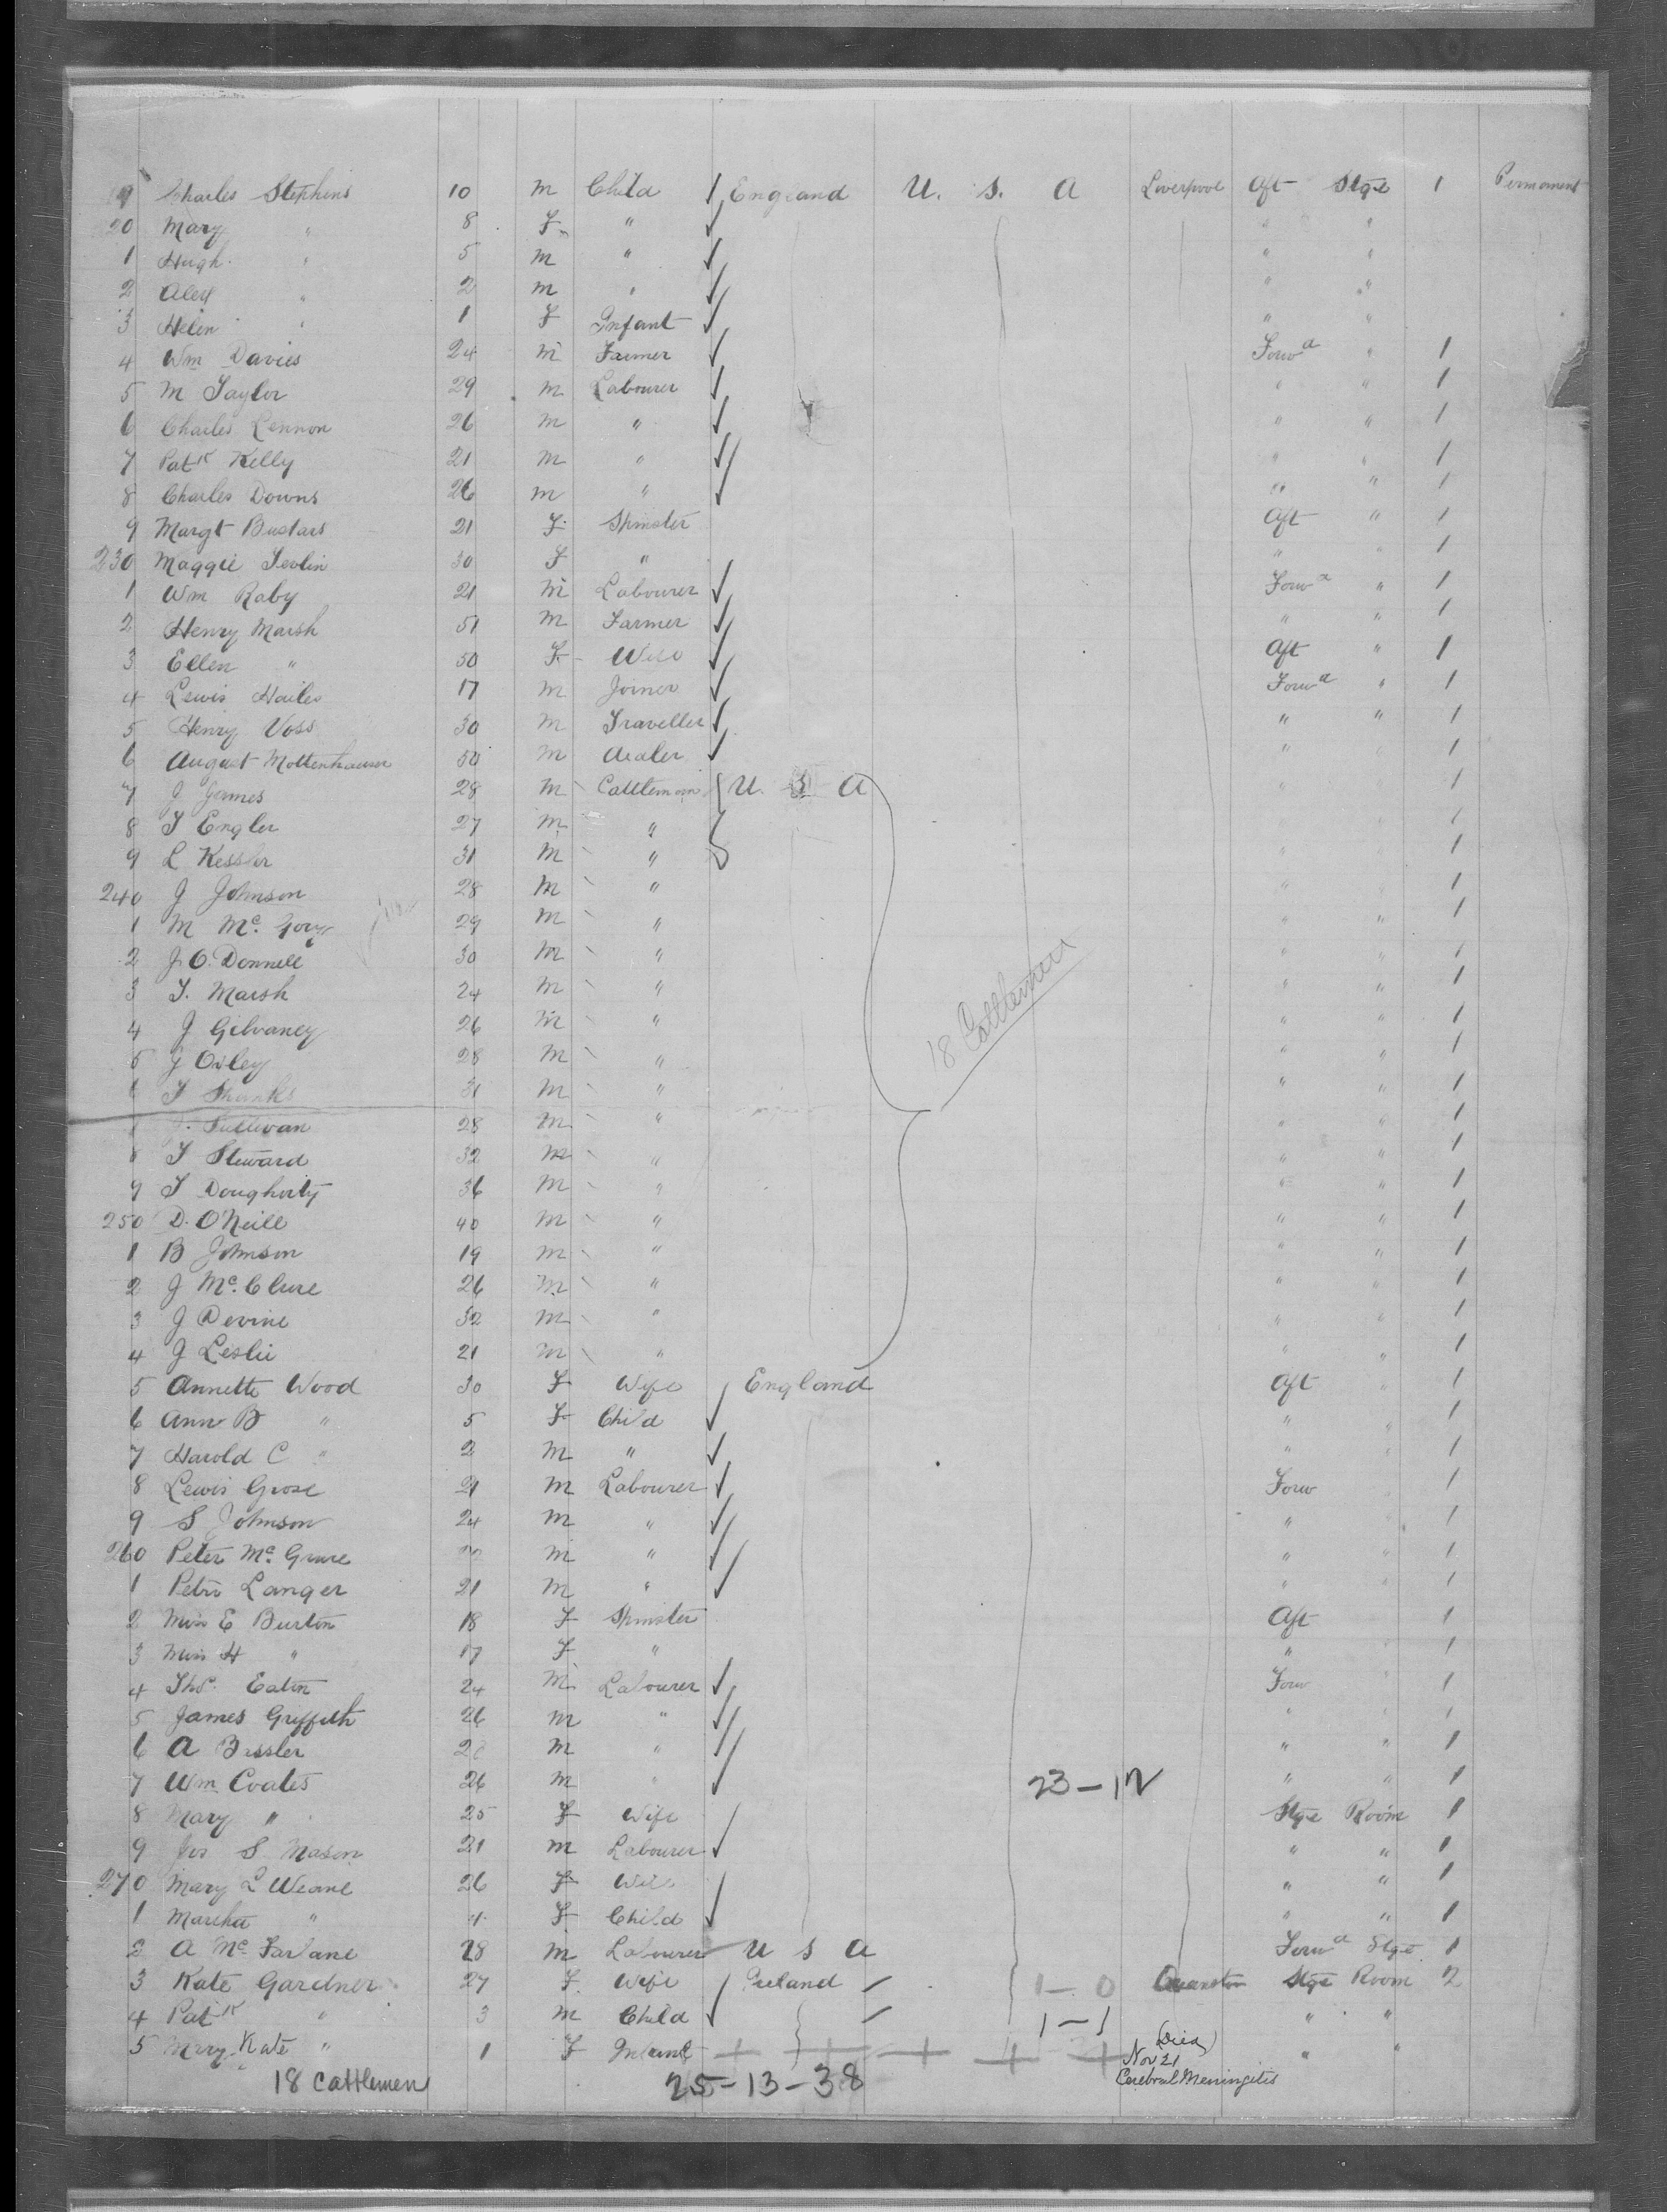 19 Charles Stephens 10 m Child England U. S. A Liverpool Aft Stge 1 Permanent
20 Mary " 8 F " " "
1 Hugh " 5 m " " "
2 Alex " 2 m " " "
3 Helen " 1 F Infant " "
4 Wm Davies 24 m Farmer Forwd " 1
5 M Taylor 29 m Labourer " " 1
6 Charles Lennon 26 m " " " 1
7 Patk Kelly 21 m " " " 1
8 Charles Downs 26 m " " " 1
9 Margt 21 F Spinster Aft " 1
230 Maggie 30 F " " " 1
1 Wm Raby 21 m Labourer Forwd " 1
2 Henry Marsh 51 m Farmer " " 1
3 Ellen " 50 F Wife Aft " 1
4 Lewis Hailes 17 m Joiner Forwd " 1
5 Henry Voss 30 m Traveller " " 1
6 August Mottenhauser 50 m Dealer " 1
7 J James 28 m Cattleman U. S A " 1
8 T Engler 27 m " " 1
9 L Kessler 31 m " " 1
240 J Johnson 28 m " " " 1
1 M Mc. 29 m " " " 1
2 J. O. Donnell 30 m " " " 1
3 T. Marsh 24 m " " " 1
4 J Gilvaney 26 m " " " 1
5 J Oxley 28 m " " " 1
6 T Shanks 31 m " " " 1
Sullivan 28 m " " " 1
8 T Steward 32 m " " " 1
9 T Dougherty 36 m " " " 1
250 D. O'Neill 40 m " " " 1
1 B Johnson 19 m " " " 1
2 J Mc. Clure 26 m " " " 1
3 J Devine 32 m " " " 1
4 J Leslie 21 m " " " 1
18 Cattlemen
5 Annette Wood 30 F Wife England Aft " 1
6 Ann B " 5 F Child " " 1
7 Harold C " 2 m " " " 1
8 Lewis Grose 21 m Labourer Forw 1
9 S Johnson 24 m " " " 1
260 Peter Mc. 22 m " " " 1
1 Petri Langer 21 m " " " 1
2 Miss E Burton 18 F Spinster Aft 1
3 Miss H " 17 F " " 1
4 Thos. Eaton 24 m Labourer Forw " 1
5 James Griffith 26 m " " " 1
6 A Bessler m " " " 1
7 Wm Coates 26 m " 23-12 " " 1
8 Mary " 25 F Wife Stge Room 1
9 Jos S Mason 21 m Labourer " " 1
270 Mary L Weane 26 F Wife " " 1
1 Martha " 4 F Child " " 1
2 A Mc Farlane 28 m Labourer U S A Forwd Stge 1
3 Kate Gardner 27 F. Wife Ireland 1-0 Stge Room 2
4 Patk " 3 m Child 1-1 " "
5 Mary Kate " 1 F Infant Died Nov 21 Cerebral Meningitis " "
18 Cattlemen 25-13-38